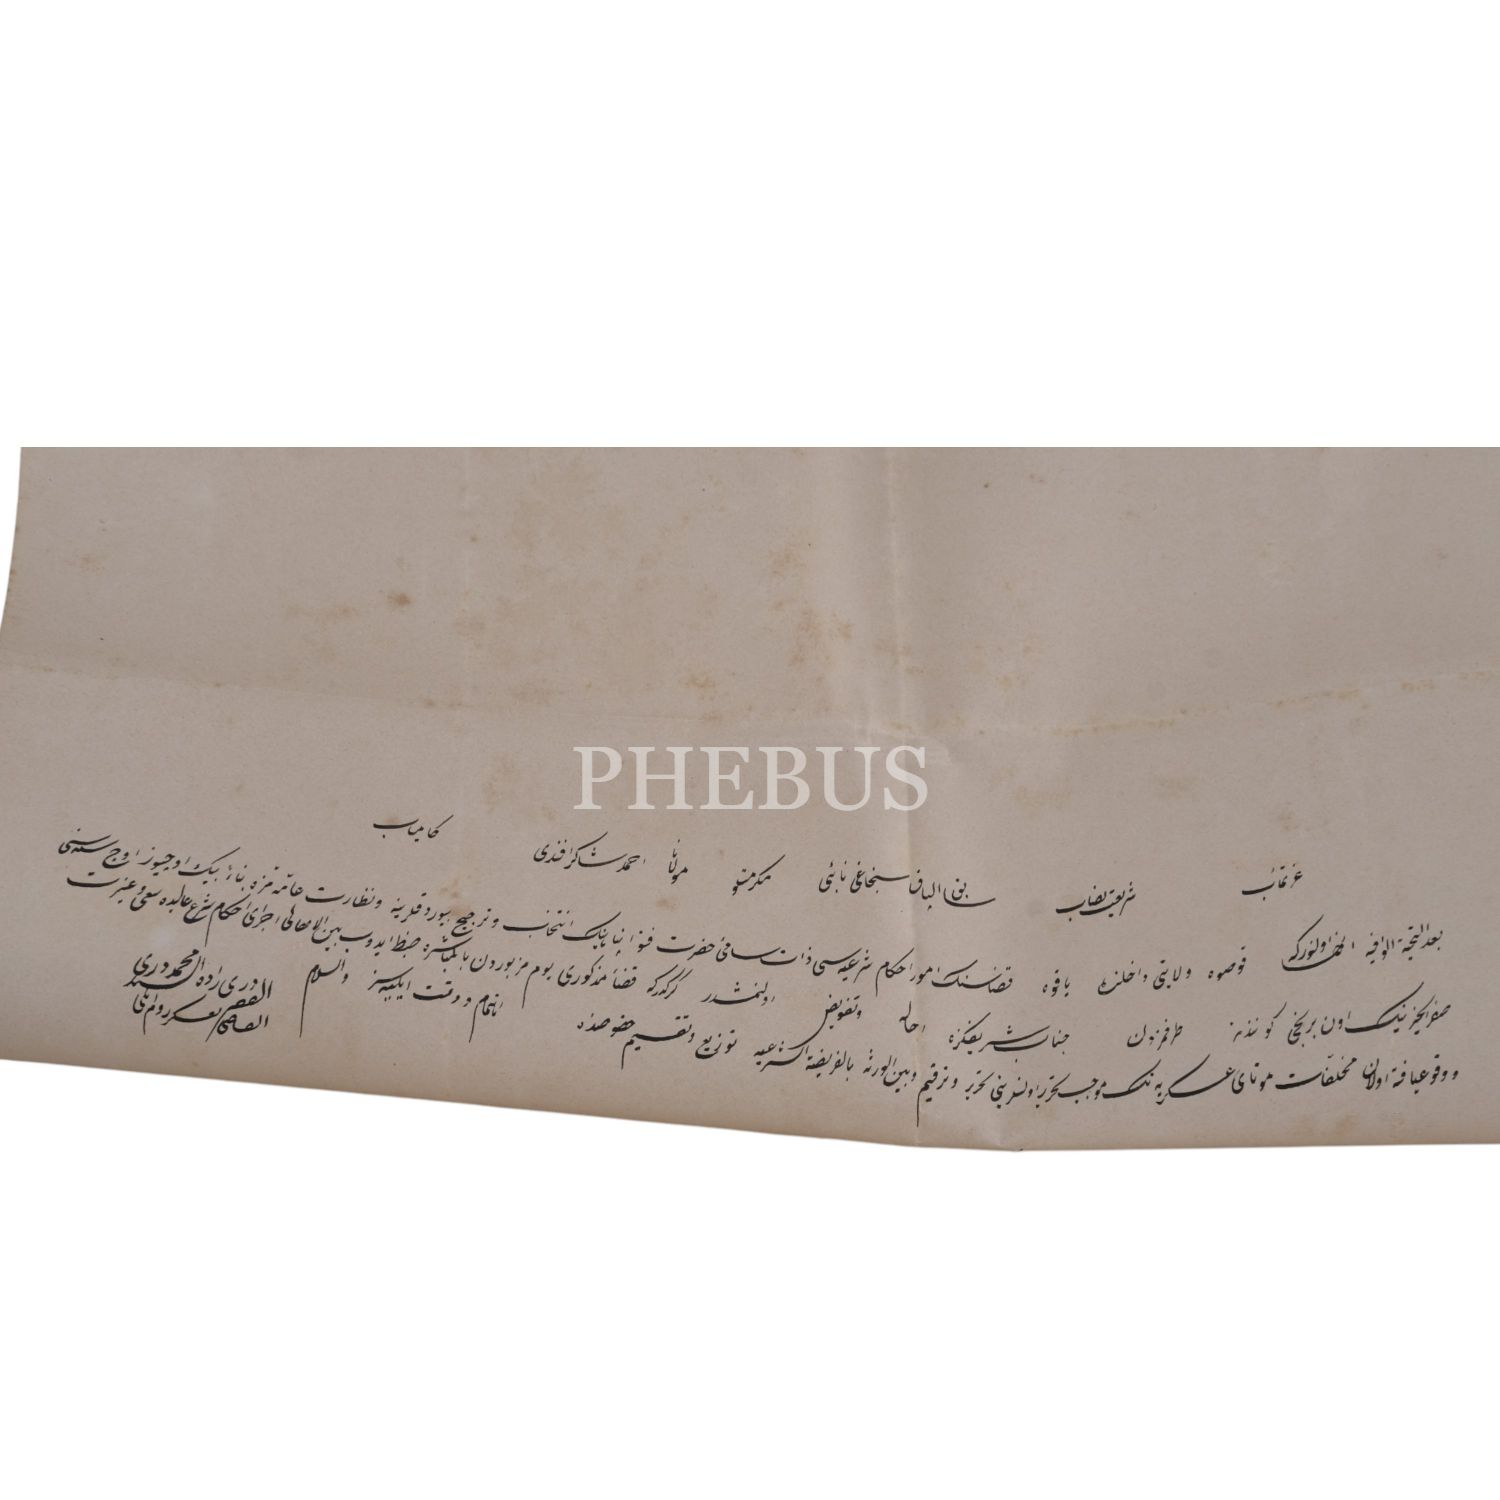 PHEBUS
عزتمآب شریعتنصاب سابق البان سنجاغی نائبی مکرمتلو مولانا احمد شاکر افندی کامیاب
بعد التحیة الوافیه انها اولنورکه قوصوه ولایتی داخلنده یاقوه قضاسنک امور احکام شرعیه سی ذات سامئ حضرت فتوا پناهینک انتخاب وترجیح بیوردقلرینه ونظارت عامه مزه بناءً بیک اوچیوز اوچ سنه سی
صفر الخیرینک اون برنجی کوندن طرفمزدن جناب شریفکزه احاله وتفویض اولنمشدر کرکدرکه قضاء مذکوری یوم مزبوردن بالمباشره ضبط ایدوب بین الاهالی اجرای احکام شرع عالیده سعی وغیرت
و وقوعیافته اولان مخلفات موتای عسکریه نک موجب تحریر اولنلرینی تحریر وترقیم وبین الورثه بالفریضة الشرعیه توزیع وتقسیم خصوصنده اهتمام ودقت ایلیه سز والسلام
الفقیر دری زاده السید محمد دری
القاضی بعسکر روم ایلی